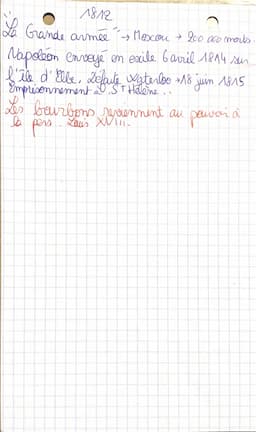 1812
La Grande armée " → Moscou → 200 000 morts.
Napoléon envoyé en exile 6 avril 1814 sur
l'île d'Elbe. Défaite Waterloo → 18 juin 1815
Emprisonnement à St Hélène..
Les bourbons reviennent au pouvoir à
la pers. Louis XVIII.